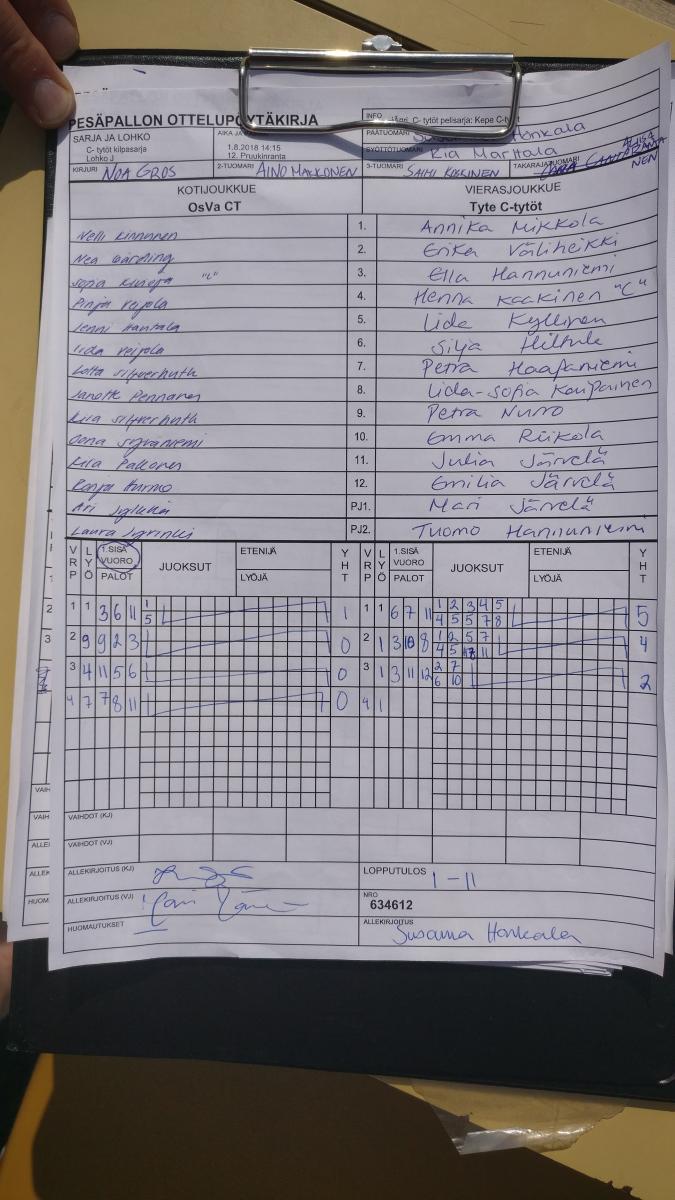 PESÄPALLON OTTELUPÖYTÄKIRJA
INFO
C- tytöt pelisarja: Kepe C-ty
SARJA JA LOHKO
C- tytöt kilpasarja
Lohko J
AIKA JA
1.8.2018 14:15
12. Pruukinranta
PÄÄTUOMARI
Honkala
SYÖTTÖTUOMARI Ria Marttala
KIRJURI NOA GROS
2-TUOMARI AINO MAKKONEN
3-TUOMARI SAIMI
TAKARAJATUOMARI
KOTIJOUKKUE
VIERASJOUKKUE
OsVa CT
Tyte C-tytöt
Nelli Kinnunen 1. Annika Mikkola
Nea 2. Erika Väliheikki
Sofia "C" 3. Ella Hannuniemi
Pinja Veijola 4. Henna Kaakinen "C"
Jenni Hantala 5. Iida Kyllinen
Iida Veijola 6. Silja Hiltula
Lotta Silfverhuth 7. Petra Haapaniemi
Janette Pennanen 8. Iida-Sofia Kaupainen
Kira Silfverhuth 9. Petra Nurro
Oona 10. Emma Riikola
Kira Pakkonen 11. Julia Järvelä
Ronja Hurmo 12. Emilia Järvelä
Ari PJ1. Mari Järvelä
Laura PJ2. Tuomo Hannuniemi
VRP LYÖ 1.SISÄ VUORO PALOT JUOKSUT ETENIJÄ LYÖJÄ YHT VRP LYÖ 1.SISÄ VUORO PALOT JUOKSUT ETENIJÄ LYÖJÄ YHT
1 1 3 6 11 1 5 1 1 1 6 7 11 1 2 3 4 5 4 5 5 7 8 5
2 9 9 2 3 0 2 1 3 10 8 1 2 5 7 4 5 11 4
3 4 11 5 6 0 3 1 3 11 12 2 7 6 10 2
4 7 7 8 11 0 4 1
VAIHDOT (KJ)
VAIHDOT (VJ)
ALLEKIRJOITUS (KJ)
LOPPUTULOS 1-11
ALLEKIRJOITUS (VJ)
NRO
634612
HUOMAUTUKSET
ALLEKIRJOITUS
Susanna Honkala